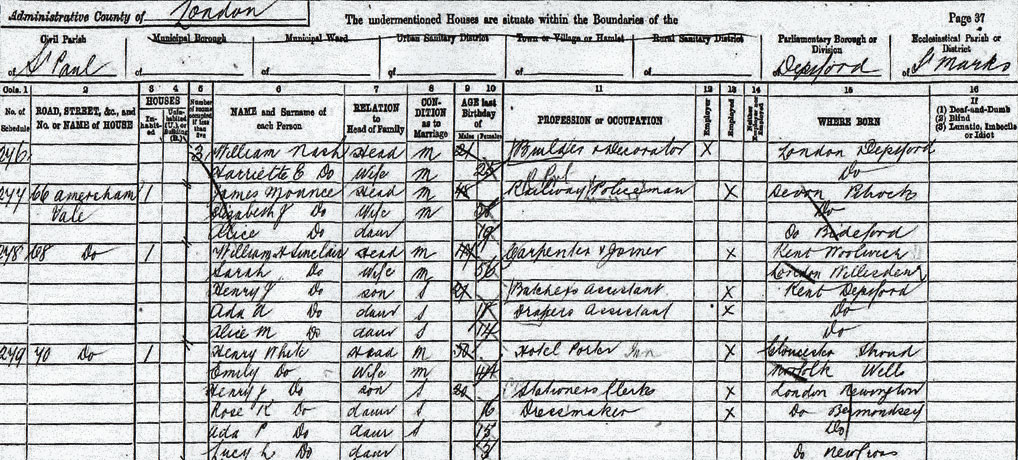 Administrative County of London
The undermentioned Houses are situate within the Boundaries of the
Page 37
Civil Parish
Municipal Borough
Municipal Ward
Urban Sanitary District
Town or Village or Hamlet
Rural Sanitary District
Parliamentary Borough or Division
Ecclesiastical Parish or District
of St Paul
of
of
of
of
of
of Deptford
of St Marks
Cols. 1 2 3 4 5 6 7 8 9 10 11 12 13 14 15 16
No. of Schedule
ROAD, STREET, &c., and No. or NAME of HOUSE
HOUSES
Inhabited
Uninhabited (U.), or Building (B.)
Number of rooms occupied if less than five
NAME and Surname of each Person
RELATION to Head of Family
CONDITION as to Marriage
AGE last Birthday of
Males Females
PROFESSION or OCCUPATION
Employer
Employed
Neither Employer nor Employed
WHERE BORN
If
(1) Deaf-and-Dumb
(2) Blind
(3) Lunatic, Imbecile or Idiot
276 3 William Nash Head M Builder & Decorator X London Deptford
Harriette E Do Wife M Do
277 66 Amersham Vale 1 James Mounce Head M Railway Policeman X Devon
Elizabeth J Do Wife M Do
Alice Do daur 19 Do Bideford
278 68 Do 1 William H Sinclair Head M Carpenter & Joiner X Kent Woolwich
Sarah Do Wife M 56 London Willesden
Henry J Do son S Butchers Assistant X Kent Deptford
Ada A Do daur S Drapers Assistant X Do
Alice M Do daur S 14 Do
279 70 Do 1 Henry White Head M 50 Hotel Porter Inn X Gloucester Stroud
Emily Do Wife M 44 Norfolk Wells
Henry J Do son S 20 Stationers Clerk X London Newington
Rose K Do daur S 16 Dressmaker X Do Bermondsey
Ada P Do daur S 15 Do
Lucy L Do daur Do New Cross